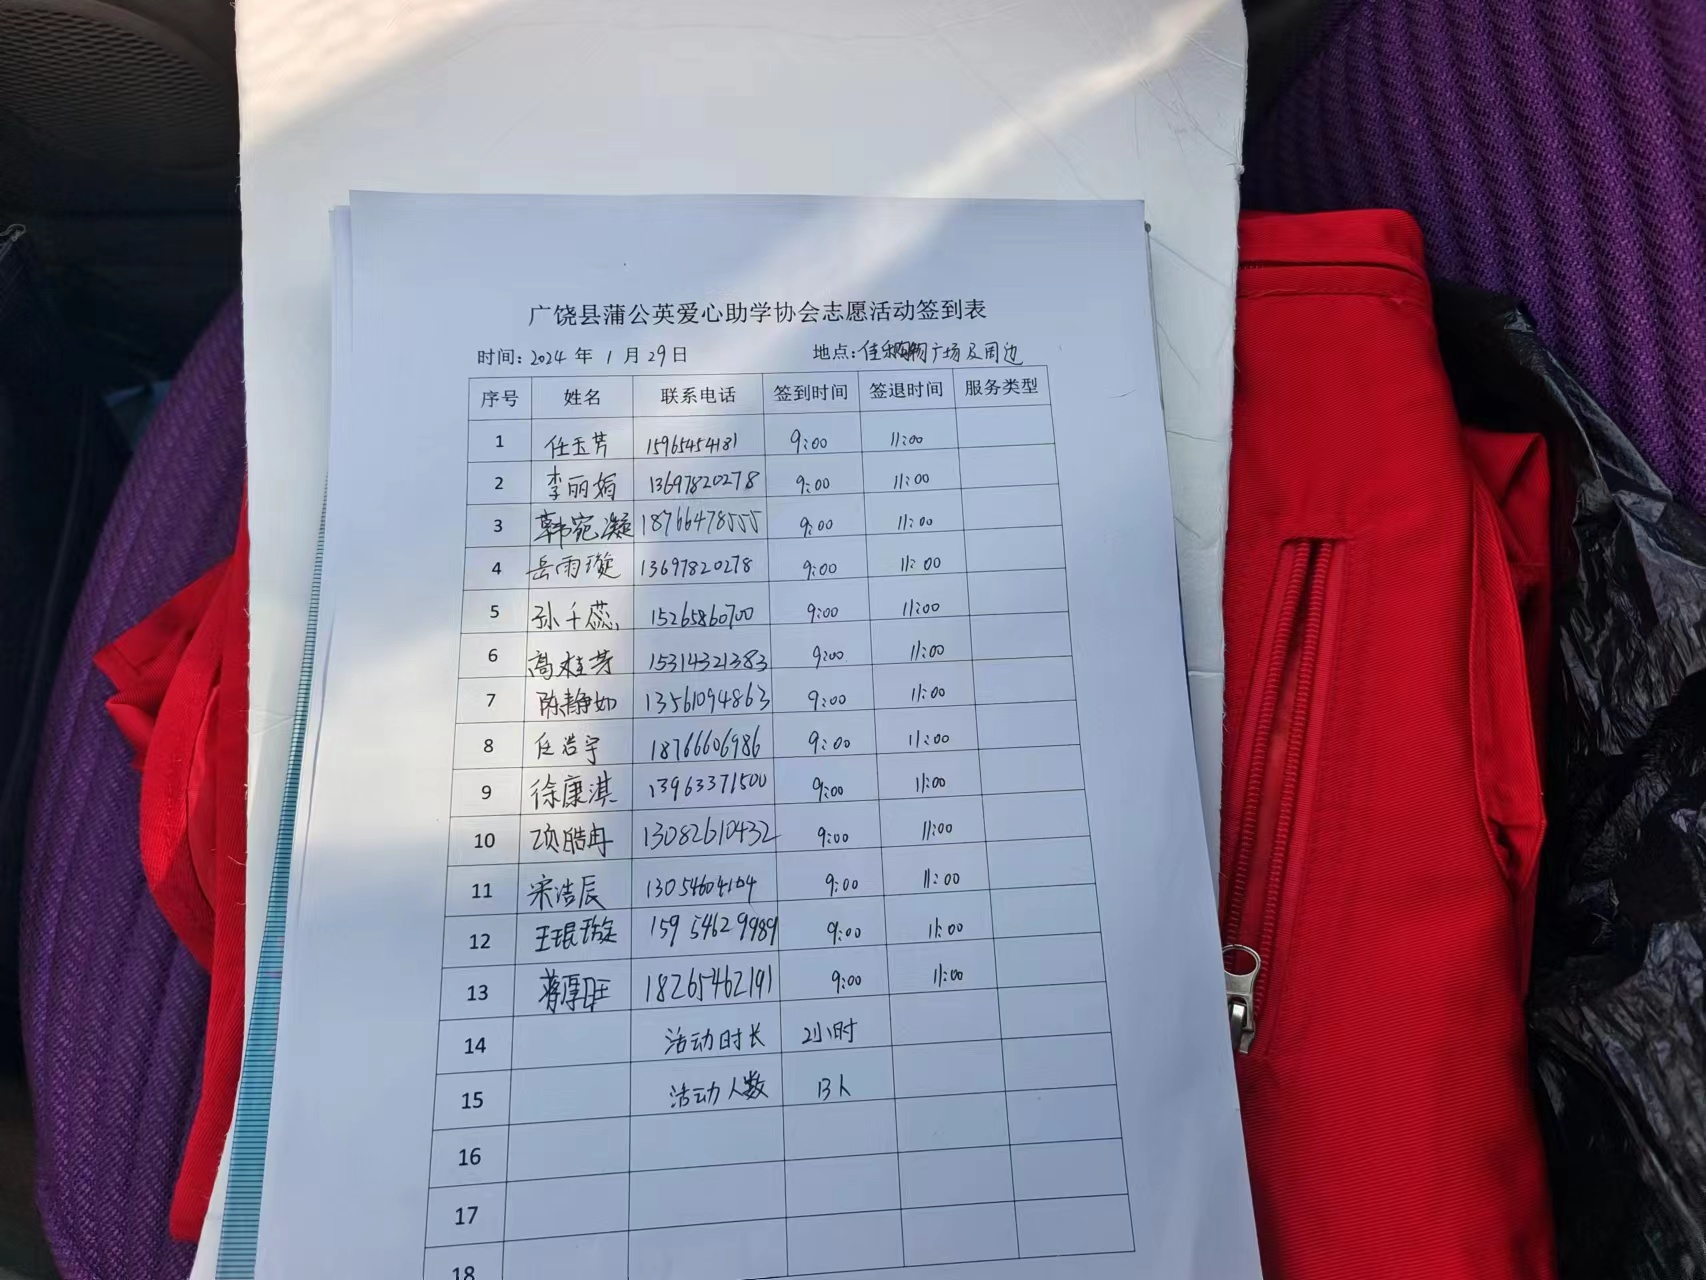 广饶县蒲公英爱心助学协会志愿活动签到表
时间: 2024 年 1 月 29 日 地点: 佳乐购物广场及周边
序号 姓名 联系电话 签到时间 签退时间 服务类型
1 任玉芳 15965454181 9:00 11:00
2 李丽娟 13697820278 9:00 11:00
3 韩宛凝 18766478555 9:00 11:00
4 岳雨璇 13697820278 9:00 11:00
5 孙千蕊 15265860700 9:00 11:00
6 高桂芳 15314321383 9:00 11:00
7 陈静如 13561094863 9:00 11:00
8 任浩宇 18766606986 9:00 11:00
9 徐康淇 13963371500 9:00 11:00
10 项皓冉 13082610432 9:00 11:00
11 宋浩辰 13054604104 9:00 11:00
12 王琨璇 15954629989 9:00 11:00
13 蒋厚旺 18265462191 9:00 11:00
14 活动时长 2小时
15 活动人数 13人
16
17
18